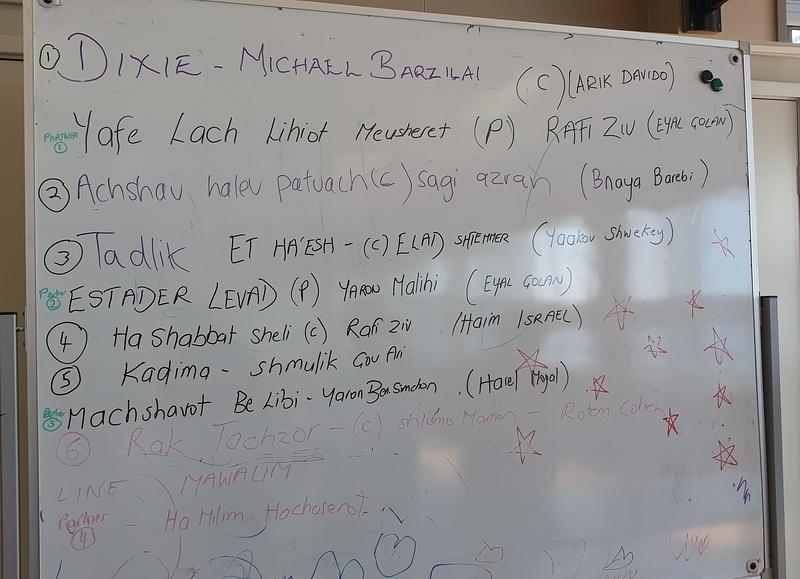 ① DIXIE - MICHAEL BARZILAI (C) (ARIK DAVIDO)
PARTNER ① Yafe Lach Lihiot Meusheret (P) RAFI ZIV (EYAL GOLAN)
② Achshav halev patuach (c) sagi azran (Bnaya Barebi)
③ Tadlik ET HA'ESH - (C) ELAD SHTEMMER (Yaakov Shwekey)
Partner ② ESTADER LEVAD (P) YARON Malihi (EYAL GOLAN)
④ Ha Shabbat Sheli (c) Rafi Ziv /Haim ISRAEL)
⑤ Kadima - Shmulik Gov Ari
Partner ③ Machshavot Be Libi - Yaron Ben Simchon (Harel Moyal)
⑥ Rak Tachzor - (c) Shlomo Maman - Rotem Cohen
LINE MAWALIM
Partner ④ - Ha Milim Hachaserot